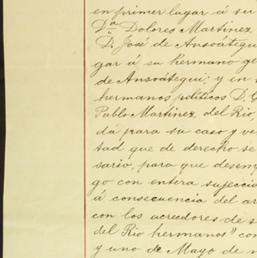 en primer lugar á su
Dª Dolores Martinez
D. José de Ansoátegui
gar á su hermano
de Ansoátegui; y en
hermanos politicos D.
Pablo Martinez del Rio,
dá para su caso y
tad que de derecho se
sario, para que desem
go con entera sujecció
á consecuencia del
con los acreedores de
del Rio hermanos" con
y uno de Mayo de